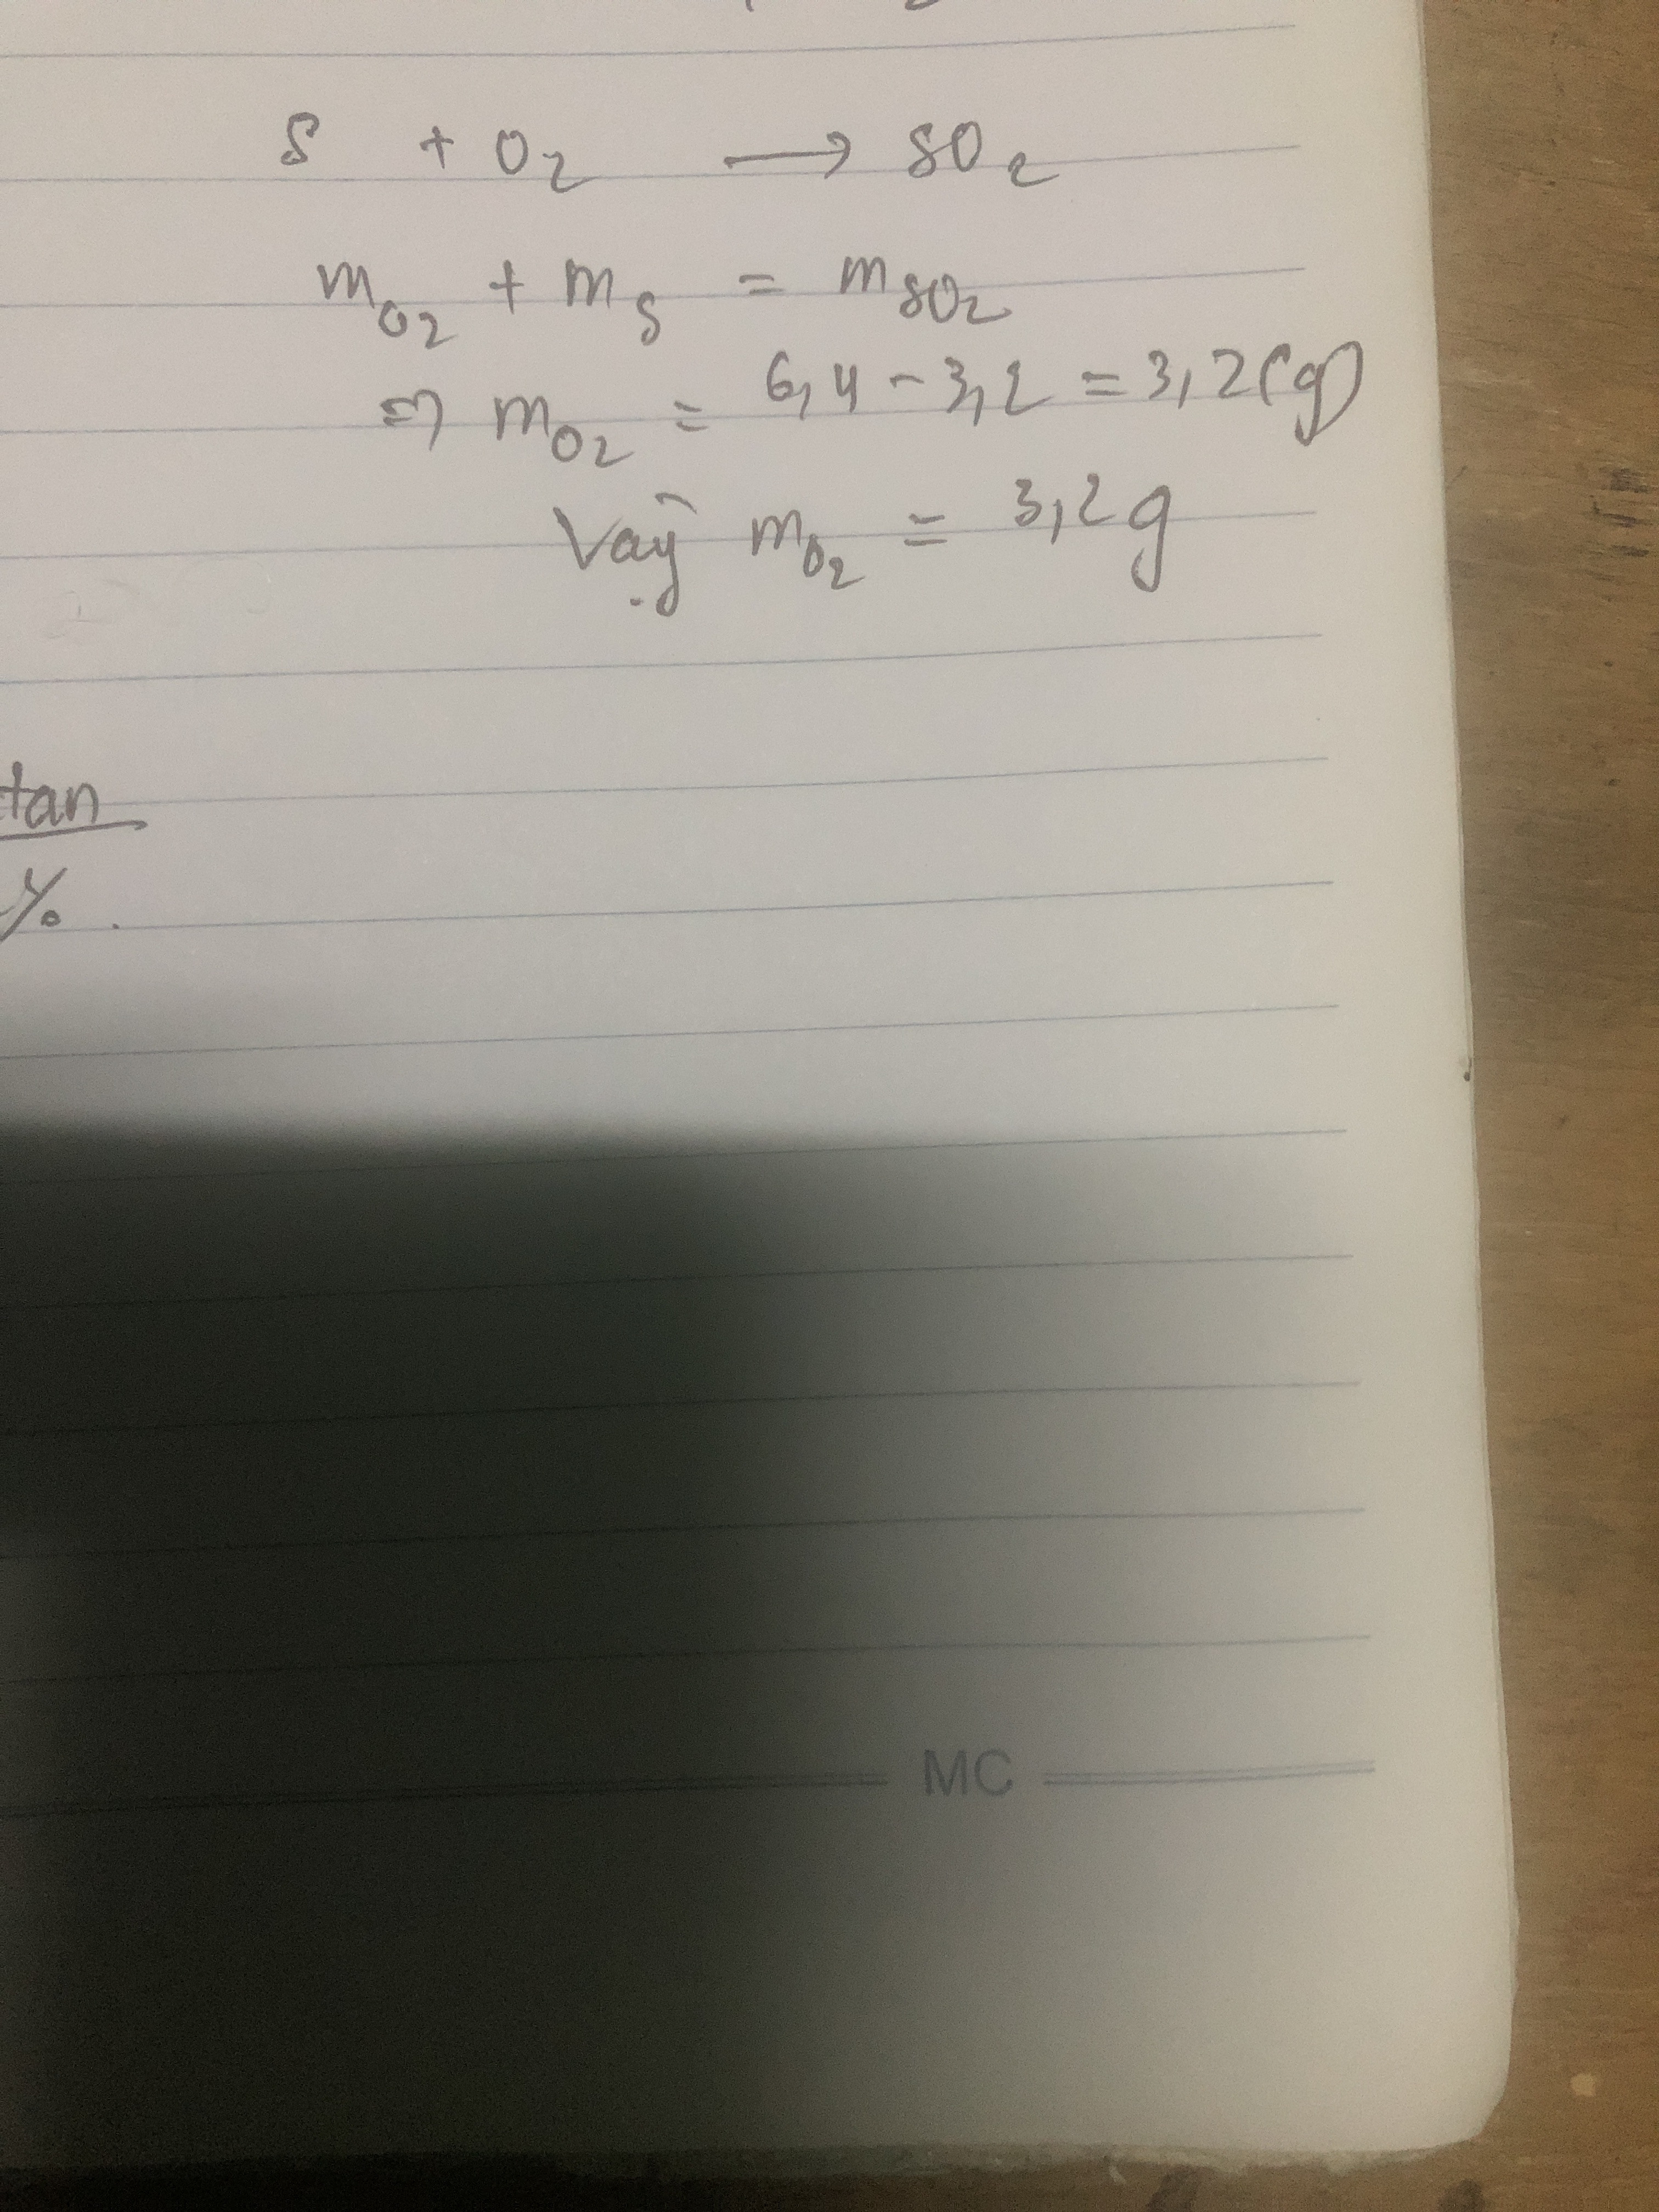 S + O₂ → SO₂
m O₂ + m S = m SO₂
⇒ m O₂ = 6,4 - 3,2 = 3,2 (g)
Vậy m O₂ = 3,2g
tan
%.
MC